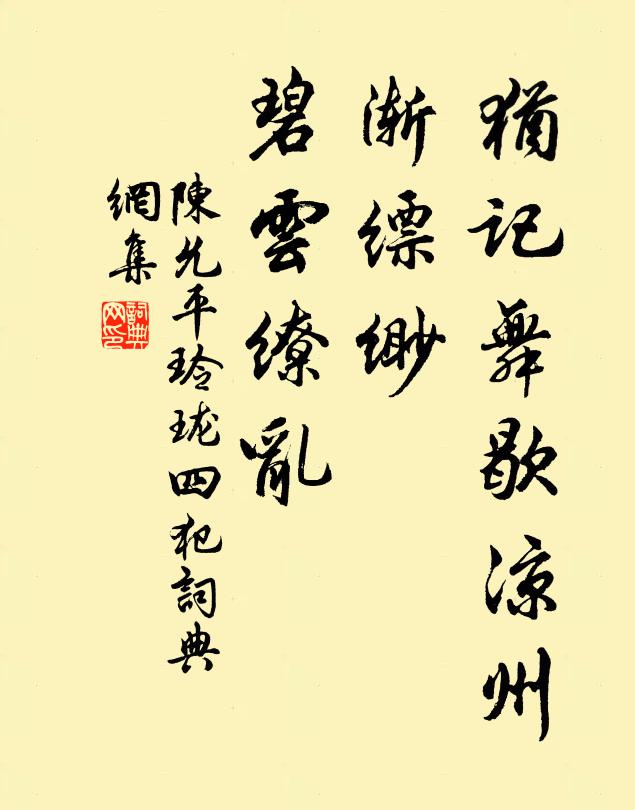 猶記舞歇涼州
漸縹緲
碧雲繚亂
陳允平玲瓏四犯詞典
網集
詞典
网印